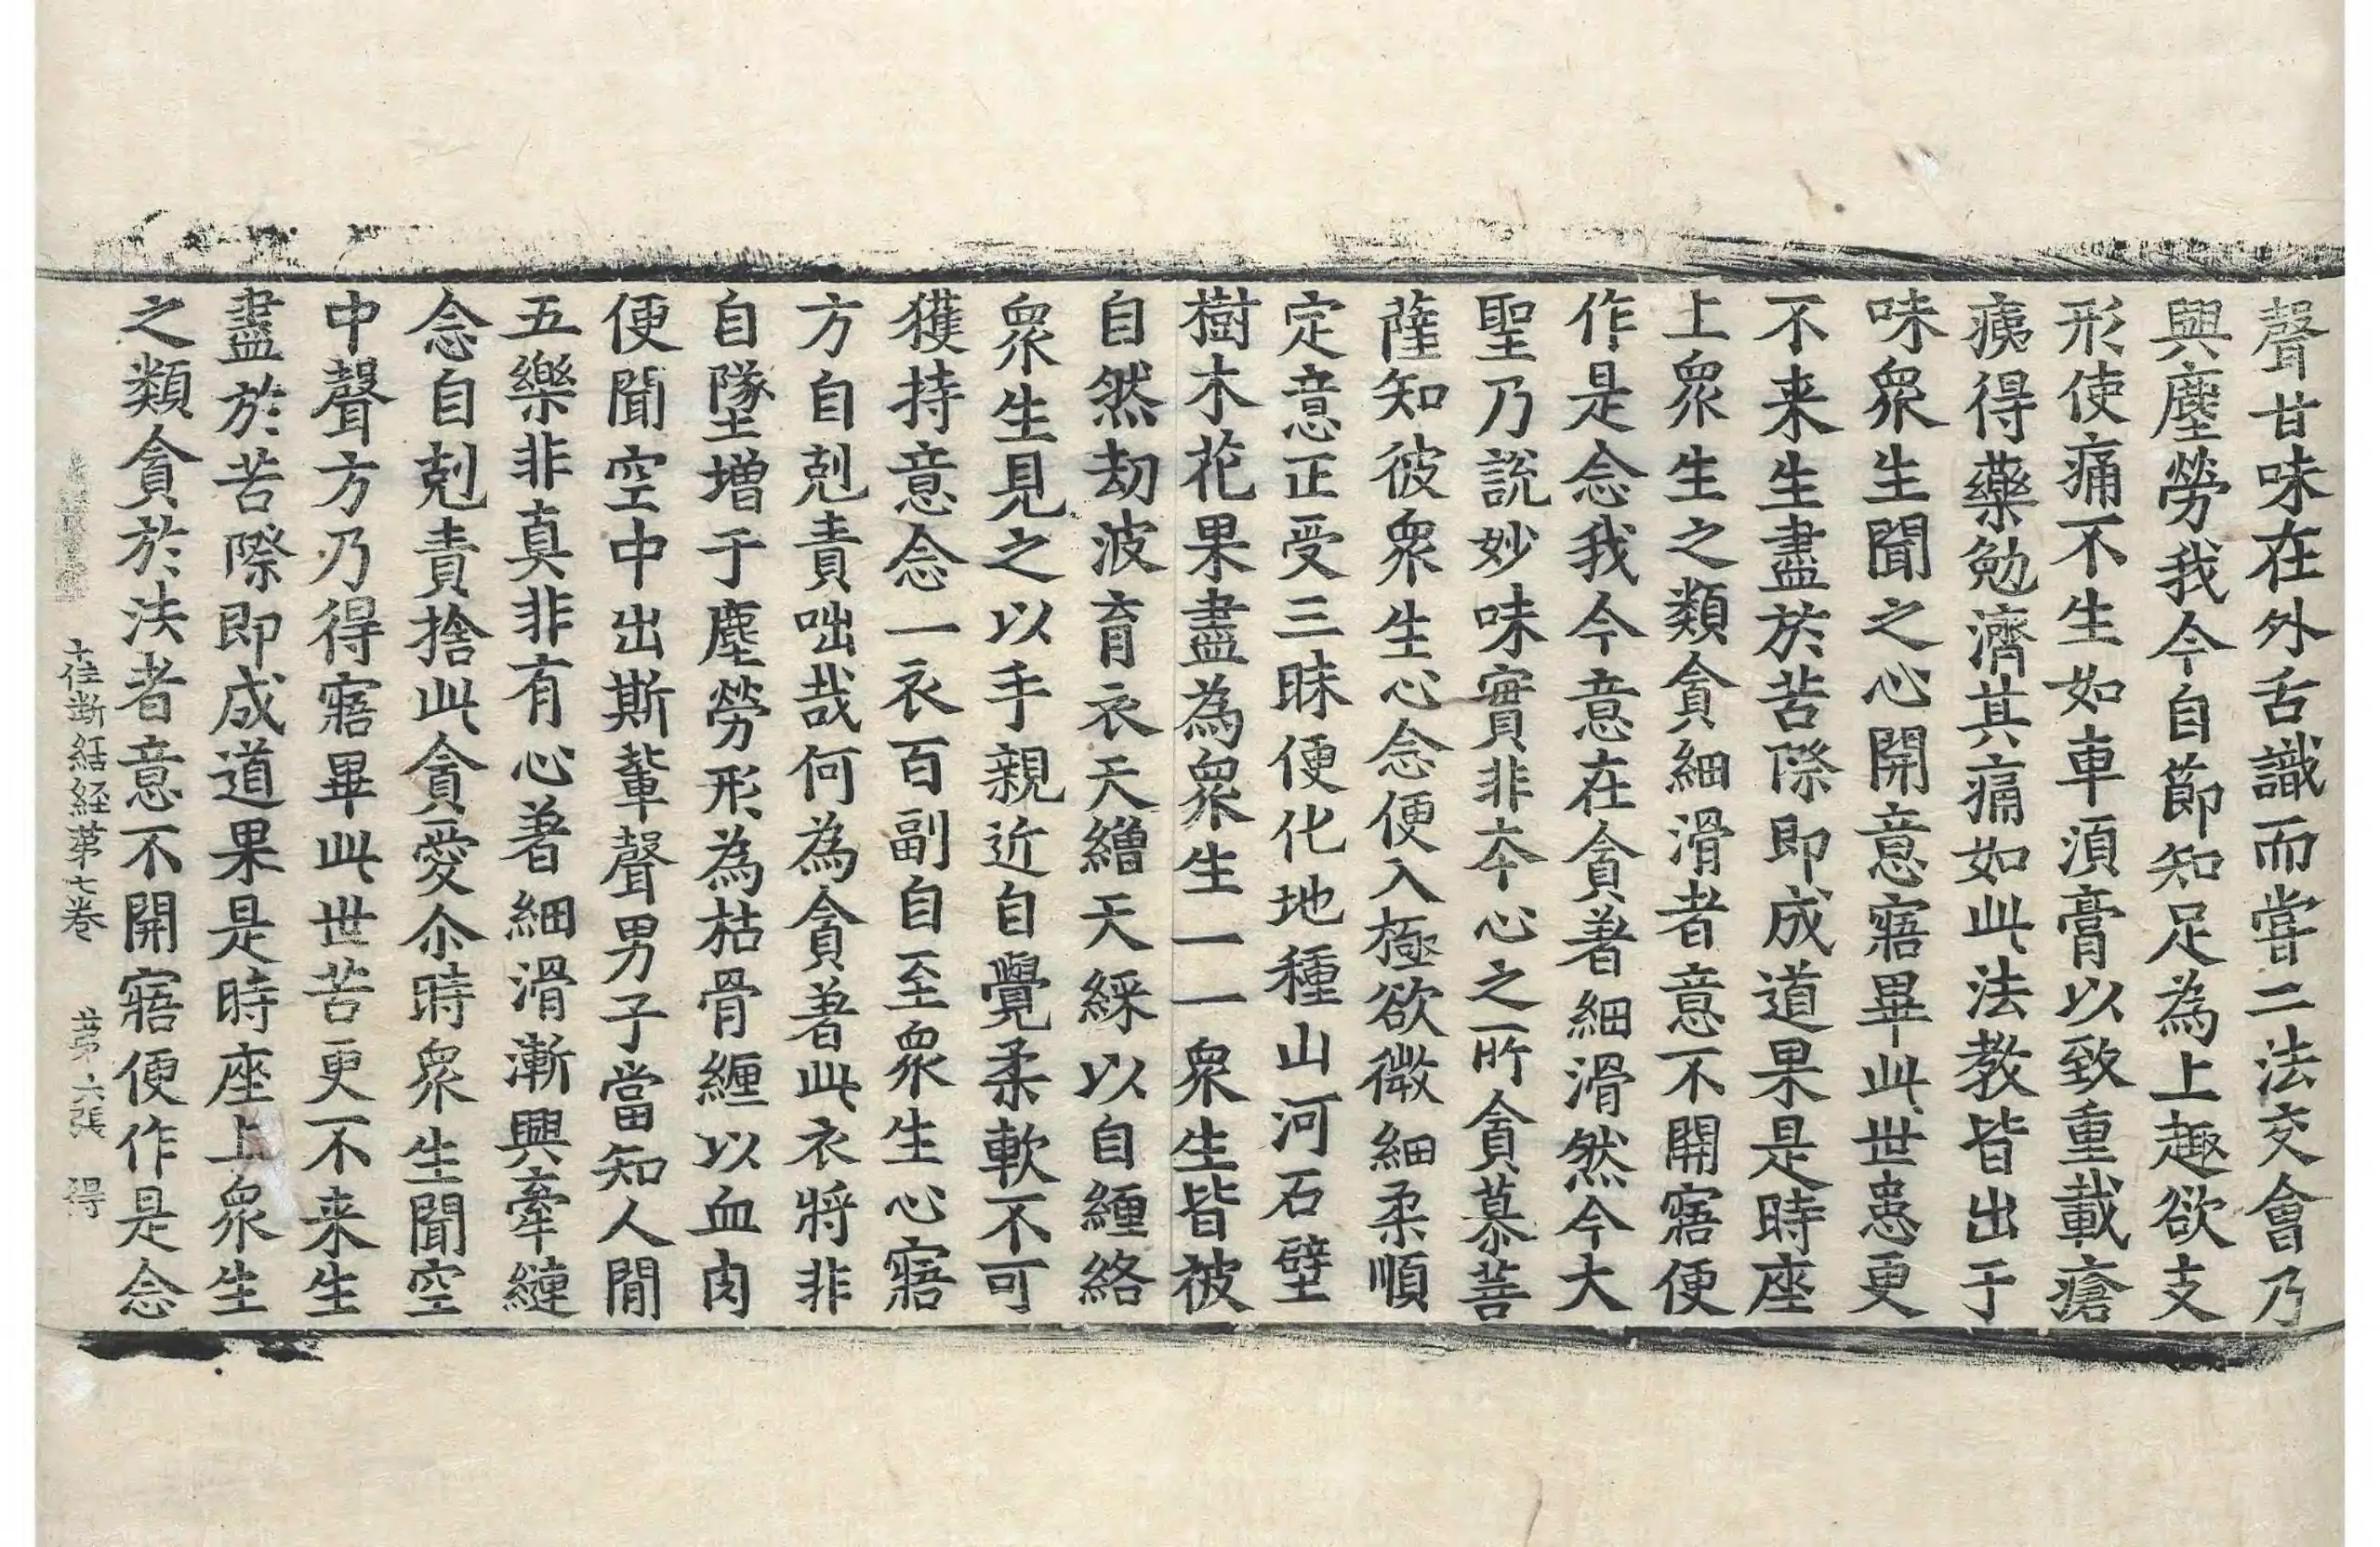 聲甘味在外舌識而嘗二法交會乃
興塵勞我今自節知足為上趣欲支
形使痛不生如車湏膏以致重載瘡
痍得藥勉濟其痛如此法教皆出于
味衆生聞之心開意寤畢此世患更
不来生盡於苦際即成道果是時座
上衆生之類貪細滑者意不開寤便
作是念我今意在貪著細滑然今大
聖乃說妙味實非夲心之所貪慕菩
薩知彼衆生心念便入極欲微細柔順
定意正受三昧便化地種山河石壁
樹木花果盡為衆生一一衆生皆被
自然劫波育衣天繒天綵以自纏絡
衆生見之以手親近自覺柔軟不可
獲持意念一衣百副自至衆生心寤
方自剋責咄哉何為貪著此衣將非
自墜增于塵勞形為枯骨纏以血肉
便聞空中出斯輩聲男子當知人間
五樂非真非有心著細滑漸興牽縺
念自剋責捨此貪愛尒時衆生聞空
中聲方乃得寤畢此世苦更不来生
盡於苦際即成道果是時座上衆生
之類貪於法者意不開寤便作是念
十住斷結経苐七卷 苐六張 得